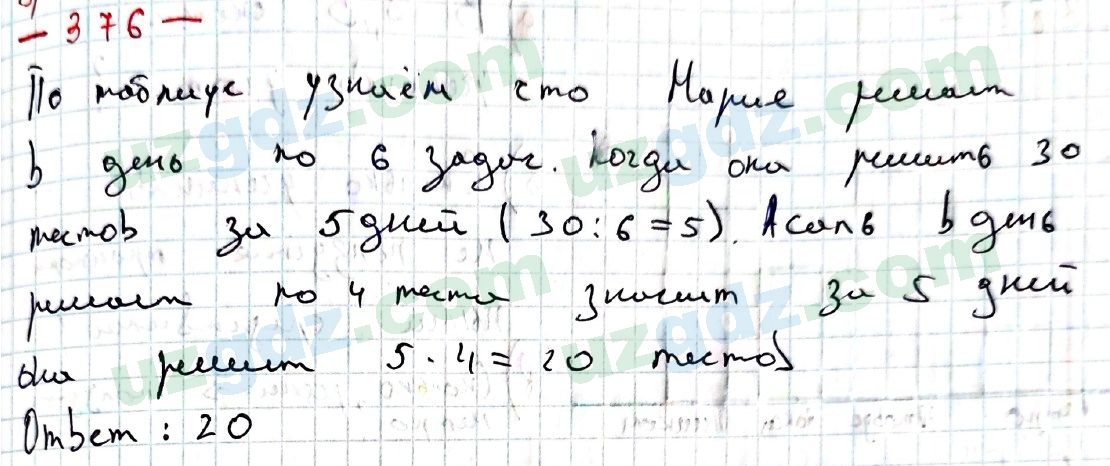 - 376 -
По таблице узнаём что Марие решает
в день по 6 задач. Когда она решить 30
тестов за 5 дней (30:6=5). Асаль в день
решает по 4 теста значит за 5 дней
она решит 5·4=20 тестов
Ответ: 20
uzgdz.com